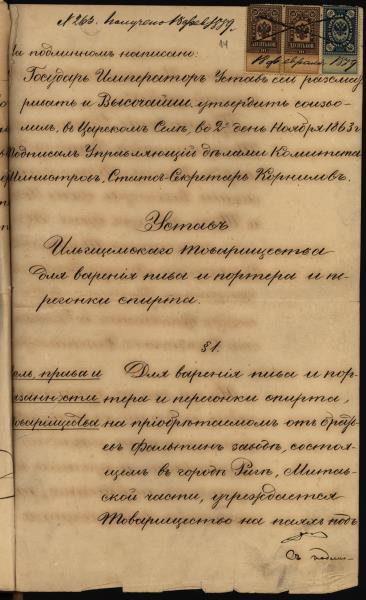 № 263. получено 13 фев 1879.
14
18 февраля 1879
На подлинномъ написано:
Государь Императоръ Уставъ сей разсма
ривать и Высочайше утвердить соизво-
лилъ, въ Царскомъ Селѣ, во 2й день Ноября 1863 г
Подписалъ Управляющій дѣлами Комитета
Министровъ, Статсъ-Секретарь Корниловъ.
Уставъ
Ильгецемскаго Товарищества
для варенія пива и портера и пе-
регонки спирта.
§ 1.
ель, права и Для варенія пива и пор-
язанности тера и перегонки спирта,
оварищества на пріобрѣтаемомъ отъ брать-
евъ Фальтинъ заводѣ, состоя-
щемъ въ городѣ Ригѣ, Митав-
ской части, учреждается
Товарищество на паяхъ подъ
Съ подлин-